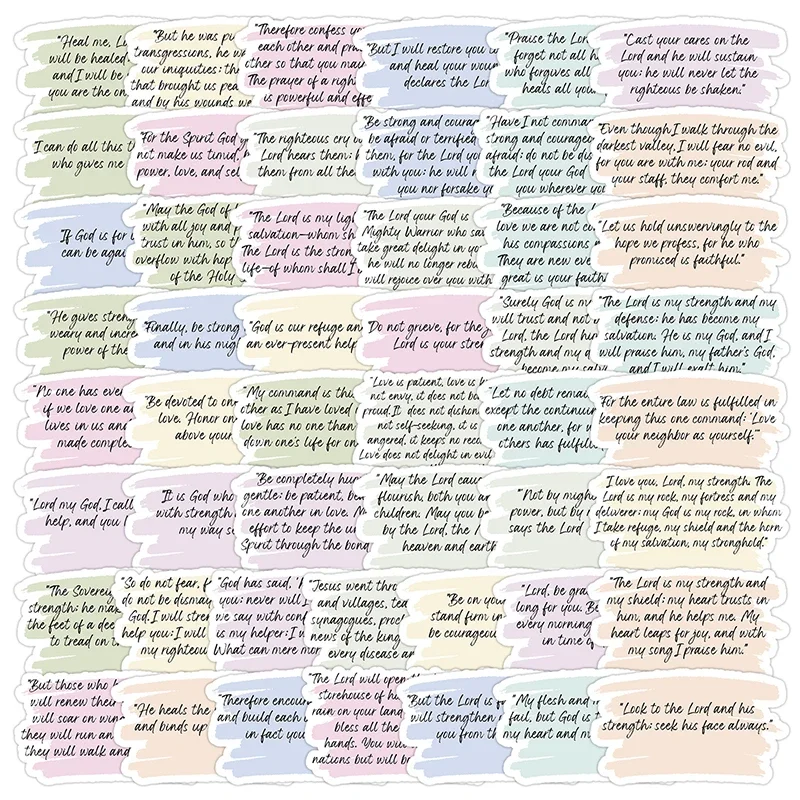 "Heal me, L
will be healed
and I will be
you are the on
"But he was pu
transgressions, he w
our iniquities: th
that brought us pea
and by his wounds we
Therefore confess yo
each other and pra
other so that you ma
The prayer of a righ
is powerful and effe
"But I will restore you
and heal your wour
declares the Lor
"Praise the Lor
forget not all h
who forgives all
heals all you
"Cast your cares on the
Lord and he will sustain
you: he will never let the
righteous be shaken."
I can do all this t
who gives me
"For the Spirit God
not make us timid,
power, love, and sel
"The righteous cry o
Lord hears them: h
them from all the
"Be strong and coura
be afraid or terrified
them, for the Lord yo
with you: he will n
you nor forsake y
"Have I not comman
strong and courage
afraid: do not be dis
the Lord your God
you wherever yo
"Even though I walk through the
darkest valley, I will fear no evil,
for you are with me: your rod and
your staff, they comfort me."
If God is for u
can be agai
"May the God of
with all joy and p
trust in him, so t
overflow with hop
of the Holy
"The Lord is my ligh
salvation—whom sh
The Lord is the stron
life—of whom shall
"The Lord your God is
Mighty Warrior who sa
take great delight in yo
he will no longer rebu
rejoice over you with
"Because of the
love we are not co
his compassions
They are new eve
great is your faith
"Let us hold unswervingly to the
hope we profess, for he who
promised is faithful."
"He gives stren
weary and incre
power of the
"Finally, be strong
and in his migh
"God is our refuge an
an ever-present help
"Do not grieve, for the j
Lord is your stre
"Surely God is m
will trust and not
Lord, the Lord him
strength and my d
become my salv
"The Lord is my strength and my
defense: he has become my
salvation. He is my God, and I
will praise him, my father's God,
and I will exalt him."
"No one has eve
if we love one a
lives in us and
made comple
"Be devoted to on
love. Honor on
above your
"My command is thi
other as I have loved
love has no one than
down one's life for on
"Love is patient, love is k
not envy, it does not bo
proud. It does not dishon
not self-seeking, it is
angered, it keeps no reco
Love does not delight in evil
"Let no debt remai
except the continuin
one another, for w
others has fulfill
"For the entire law is fulfilled in
keeping this one command: 'Love
your neighbor as yourself.'"
"Lord my God, I call
help, and you
"It is God who
with strength
my way s
"Be completely hum
gentle: be patient, be
one another in love. M
effort to keep the u
Spirit through the bon
"May the Lord cau
flourish, both you an
children. May you b
by the Lord, the M
heaven and earth
"Not by migh
power, but by
says the Lord
"I love you, Lord, my strength. The
Lord is my rock, my fortress and my
deliverer: my God is my rock, in whom
I take refuge, my shield and the horn
of my salvation, my stronghold."
"The Soverei
strength: he ma
the feet of a dee
to tread on t
"So do not fear, f
do not be dismay
God. I will stren
help you: I will
my righteou
"God has said, "
you: never will
we say with con
is my helper: I w
What can mere mor
"Jesus went thro
and villages, tea
synagogues, proc
news of the king
every disease an
"Be on you
stand firm in
be courageou
"Lord, be gra
long for you. Be
every morning
in time o
"The Lord is my strength and
my shield: my heart trusts in
him, and he helps me. My
heart leaps for joy, and with
my song I praise him."
"But those who h
will renew their
will soar on win
they will run and
they will walk and
"He heals the
and binds up
"Therefore encour
and build each
in fact you
"The Lord will open th
storehouse of hi
rain on your lan
bless all the
hands. You wil
nations but will b
"But the Lord is
will strengthen
you from th
"My flesh and m
fail, but God is t
my heart and m
"Look to the Lord and his
strength: seek his face always."